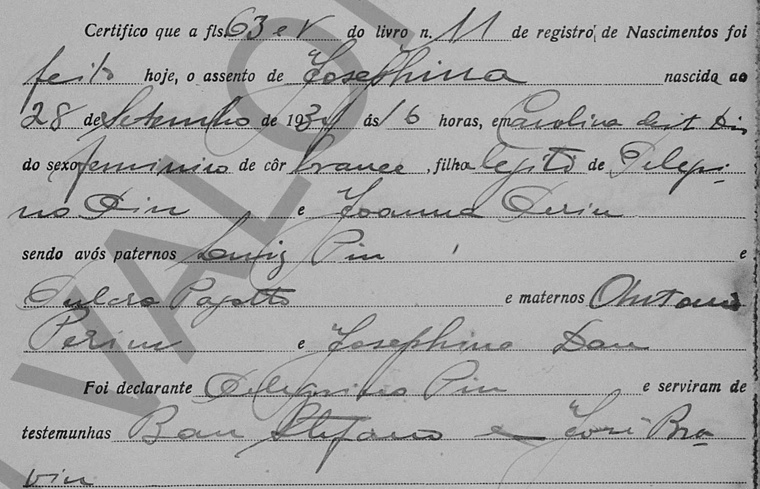 Certifico que a fls. 63 e V do livro n. 11 de registro de Nascimentos foi
feito hoje, o assento de Josephina nascida ao
28 de Setembro de 193 ás 16 horas, em Carolina
do sexo feminino de côr branca, filha legit de Pelegri-
no Pin e Joanna Perin
sendo avós paternos Luiz Pin e
e maternos Antonio
Perim e Josephina Dan
Foi declarante Pelegrino Pin e serviram de
testemunhas Bau Stefano e José Bra-
vin
VALO